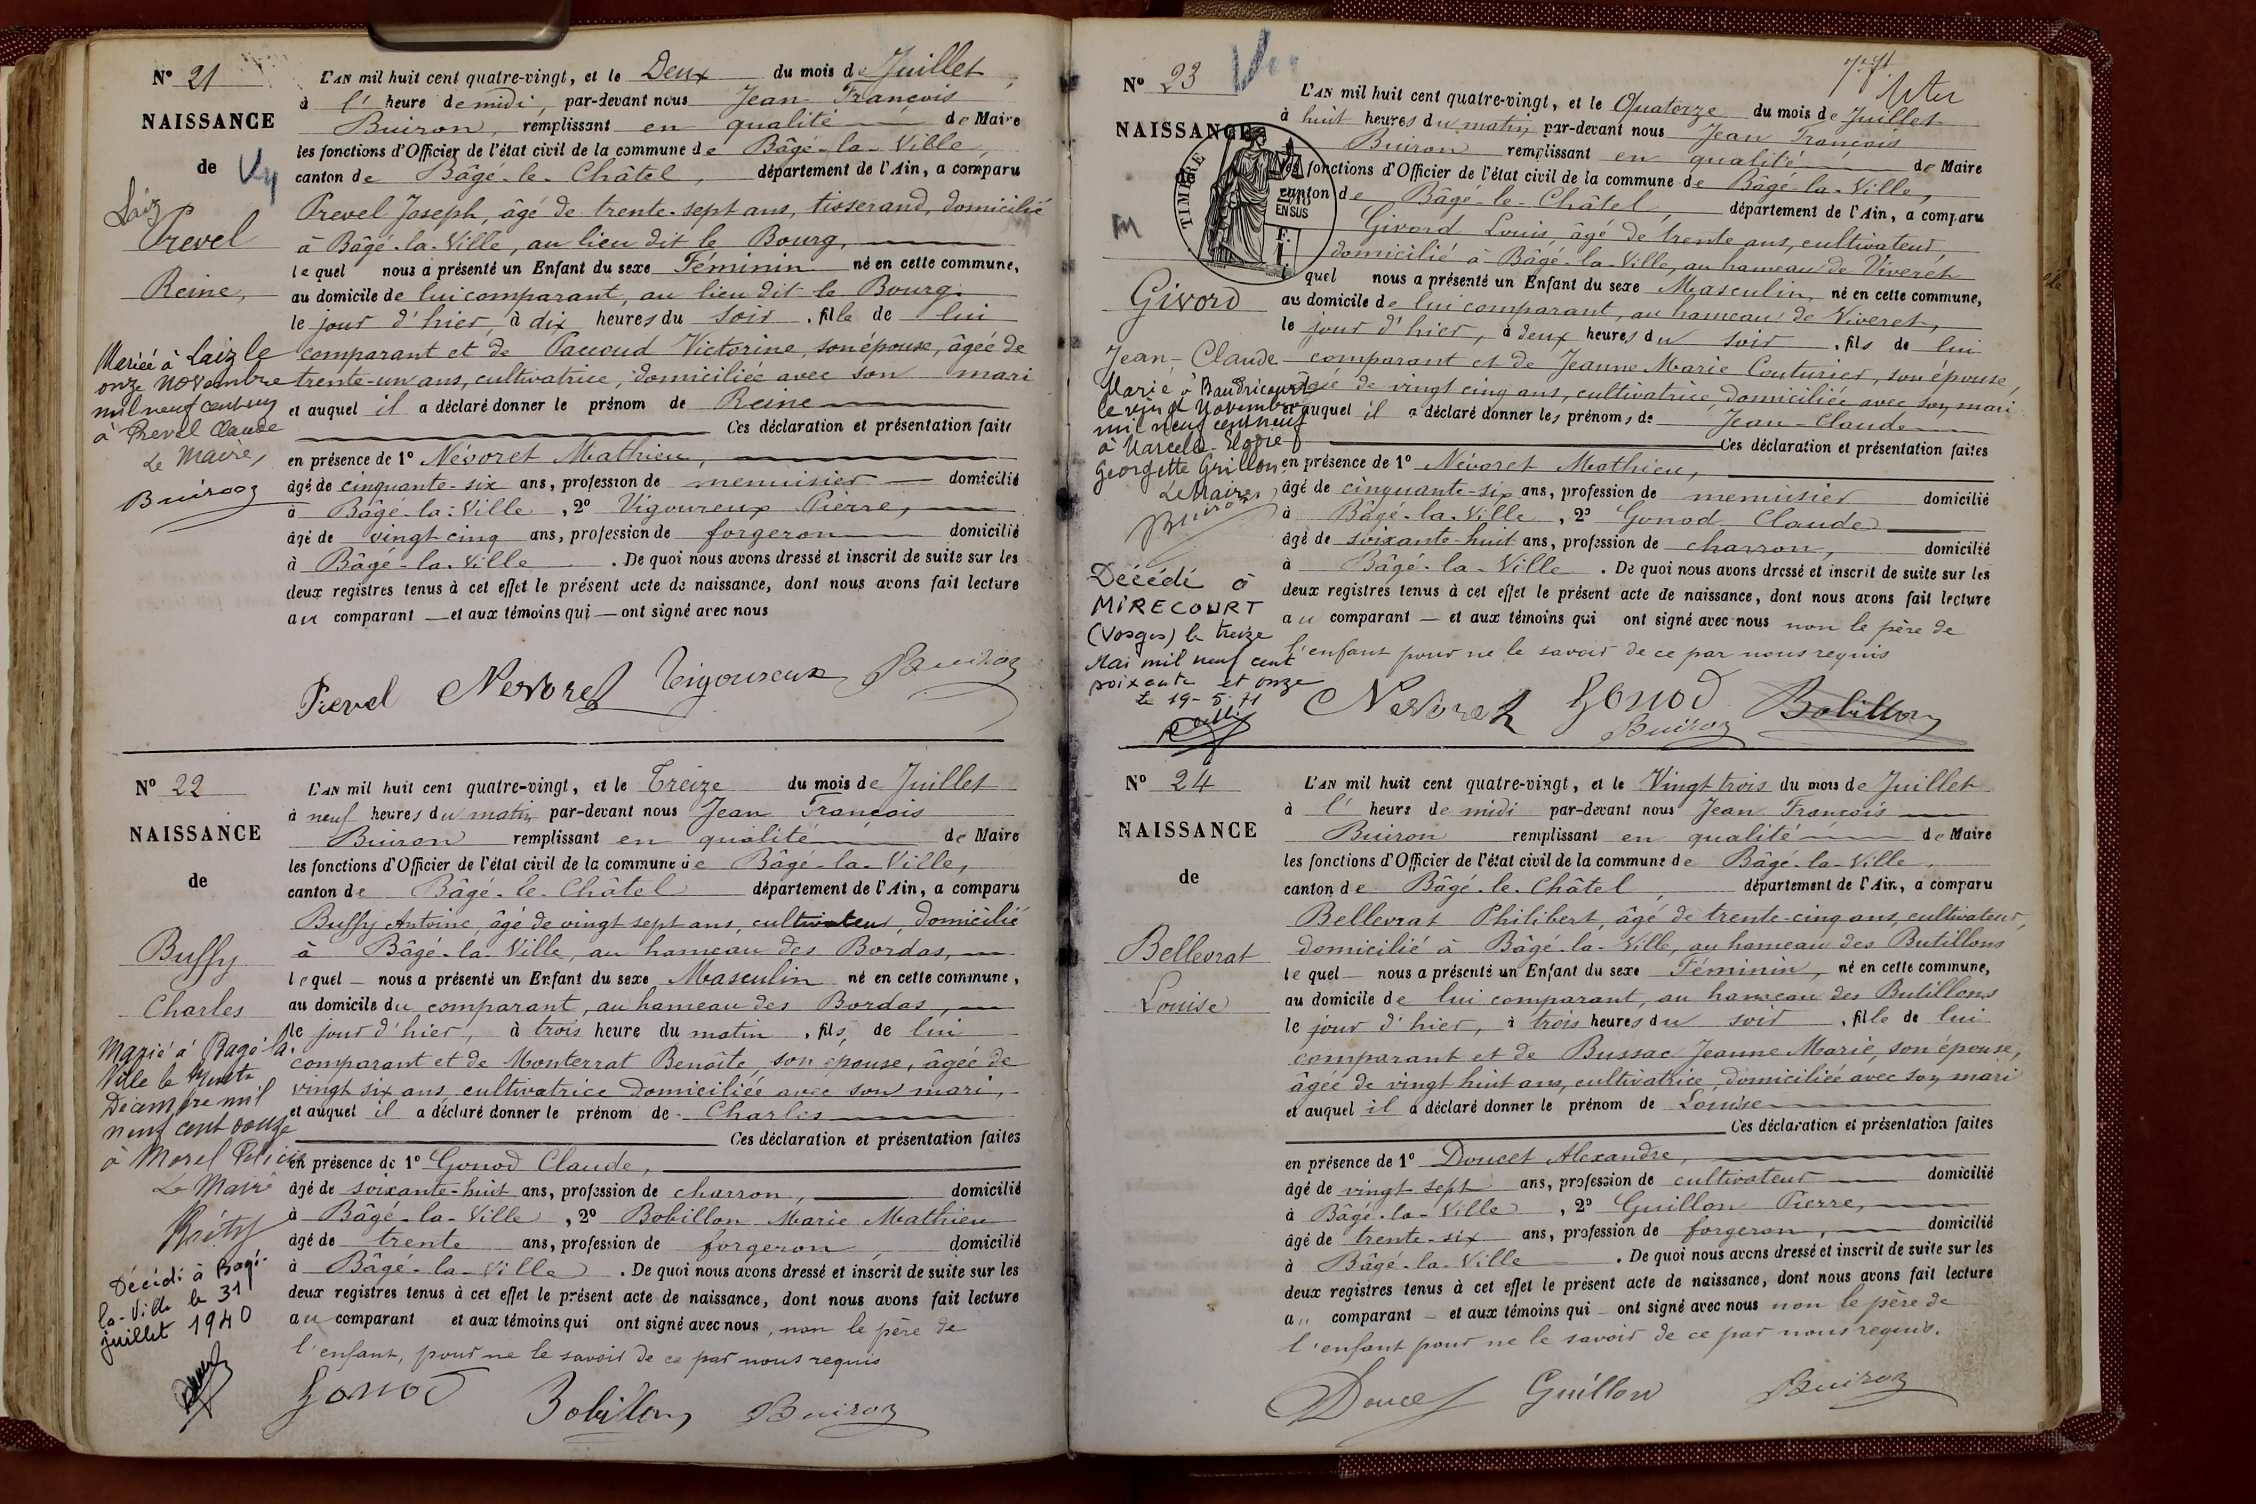 N° 21
NAISSANCE
de
Laiz
Prevel
Reine,
Mariée à Laiz le
onze Novembre
mil neuf cent un
à Prevel Claude
Le Maire,
Buiron
L'AN mil huit cent quatre-vingt, et le Deux du mois de Juillet,
à l' heure de midi, par-devant nous Jean François
Buiron, remplissant en qualité de Maire
les fonctions d'Officier de l'état civil de la commune de Bâgé-la-Ville,
canton de Bâgé-le-Châtel, département de l'Ain, a comparu
Prevel Joseph, âgé de trente-sept ans, tisserand, domicilié
à Bâgé-la-Ville, au lieu dit le Bourg,
lequel nous a présenté un Enfant du sexe Féminin né en cette commune,
au domicile de lui comparant, au lieu dit le Bourg.
le jour d'hier, à dix heures du soir, fille de lui
comparant et de Paccoud Victorine, son épouse, âgée de
trente-un ans, cultivatrice, domiciliée avec son mari
et auquel il a déclaré donner le prénom de Reine
Ces déclaration et présentation faites
en présence de 1° Névoret Mathieu,
âgé de cinquante-six ans, profession de menuisier domicilié
à Bâgé-la-Ville, 2° Vigoureux Pierre,
âgé de vingt cinq ans, profession de forgeron domicilié
à Bâgé-la-Ville. De quoi nous avons dressé et inscrit de suite sur les
deux registres tenus à cet effet le présent acte de naissance, dont nous avons fait lecture
au comparant et aux témoins qui ont signé avec nous
Prevel Nevoret Vigoureux Buiron
N° 22
NAISSANCE
de
Buffy
Charles
Marié à Bagé la
Ville le trente
Décembre mil
neuf cent douze
à Morel
Le Maire
Décédé à Bagé-
la-Ville le 31
juillet 1940
L'AN mil huit cent quatre-vingt, et le Treize du mois de Juillet
à neuf heures du matin par-devant nous Jean François
Buiron remplissant en qualité de Maire
les fonctions d'Officier de l'état civil de la commune de Bâgé-la-Ville,
canton de Bâgé-le-Châtel département de l'Ain, a comparu
Buffy Antoine, âgé de vingt sept ans, cultivateur, domicilié
à Bâgé-la-Ville, au hameau des Bordas,
lequel nous a présenté un Enfant du sexe Masculin né en cette commune,
au domicile du comparant, au hameau des Bordas,
le jour d'hier, à trois heure du matin, fils de lui
comparant et de Monterrat Benoîte, son épouse, âgée de
vingt six ans, cultivatrice domiciliée avec son mari,
et auquel il a déclaré donner le prénom de Charles
Ces déclaration et présentation faites
en présence de 1° Gonod Claude,
âgé de soixante-huit ans, profession de charron, domicilié
à Bâgé-la-Ville, 2° Bobillon Marie Mathieu
âgé de trente ans, profession de forgeron domicilié
à Bâgé-la-Ville. De quoi nous avons dressé et inscrit de suite sur les
deux registres tenus à cet effet le présent acte de naissance, dont nous avons fait lecture
au comparant et aux témoins qui ont signé avec nous, non le père de
l'enfant, pour ne le savoir de ce par nous requis
Gonod Bobillon Buiron
N° 23
NAISSANCE
TIMBRE
2/10
EN SUS
F.
1.
Givord
Jean-Claude
Marié à Baudricourt
le vingt Novembre
mil neuf cent neuf
à Marcelle
Georgette Grillon
Le Maire,
Buiron
Décédé à
MIRECOURT
(Vosges) le treize
Mai mil neuf cent
soixante et onze
Le 19-5-71
L'AN mil huit cent quatre-vingt, et le Quatorze du mois de Juillet
à huit heures du matin par-devant nous Jean François
Buiron remplissant en qualité de Maire
les fonctions d'Officier de l'état civil de la commune de Bâgé-la-Ville,
canton de Bâgé-le-Châtel, département de l'Ain, a comparu
Givord Louis, âgé de trente ans, cultivateur,
domicilié à Bâgé-la-Ville, au hameau de Viveret
lequel nous a présenté un Enfant du sexe Masculin, né en cette commune,
au domicile de lui comparant, au hameau de Viveret,
le jour d'hier, à deux heures du soir, fils de lui
comparant et de Jeanne Marie Couturier, son épouse,
âgée de vingt cinq ans, cultivatrice, domiciliée avec son mari
et auquel il a déclaré donner les prénoms de Jean-Claude
Ces déclaration et présentation faites
en présence de 1° Névoret Mathieu,
âgé de cinquante-six ans, profession de menuisier domicilié
à Bâgé-la-Ville, 2° Gonod Claude
âgé de soixante-huit ans, profession de charron, domicilié
à Bâgé-la-Ville. De quoi nous avons dressé et inscrit de suite sur les
deux registres tenus à cet effet le présent acte de naissance, dont nous avons fait lecture
au comparant et aux témoins qui ont signé avec nous non le père de
l'enfant pour ne le savoir de ce par nous requis
Nevoret Gonod Bobillon
Buiron
N° 24
NAISSANCE
de
Bellevrat
Louise
L'AN mil huit cent quatre-vingt, et le Vingt trois du mois de Juillet
à l' heure de midi par-devant nous Jean François
Buiron remplissant en qualité de Maire
les fonctions d'Officier de l'état civil de la commune de Bâgé-la-Ville,
canton de Bâgé-le-Châtel, département de l'Ain, a comparu
Bellevrat Philibert, âgé de trente-cinq ans, cultivateur,
domicilié à Bâgé-la-Ville, au hameau des Butillons
lequel nous a présenté un Enfant du sexe Féminin, né en cette commune,
au domicile de lui comparant, au hameau des Butillons
le jour d'hier, à trois heures du soir, fille de lui
comparant et de Bussac Jeanne Marie, son épouse,
âgée de vingt huit ans, cultivatrice, domiciliée avec son mari
et auquel il a déclaré donner le prénom de Louise
Ces déclaration et présentation faites
en présence de 1° Doucet Alexandre,
âgé de vingt sept ans, profession de cultivateur domicilié
à Bâgé-la-Ville, 2° Guillon Pierre,
âgé de trente-six ans, profession de forgeron, domicilié
à Bâgé-la-Ville. De quoi nous avons dressé et inscrit de suite sur les
deux registres tenus à cet effet le présent acte de naissance, dont nous avons fait lecture
au comparant et aux témoins qui ont signé avec nous non le père de
l'enfant pour ne le savoir de ce par nous requis.
Doucet Guillon Buiron